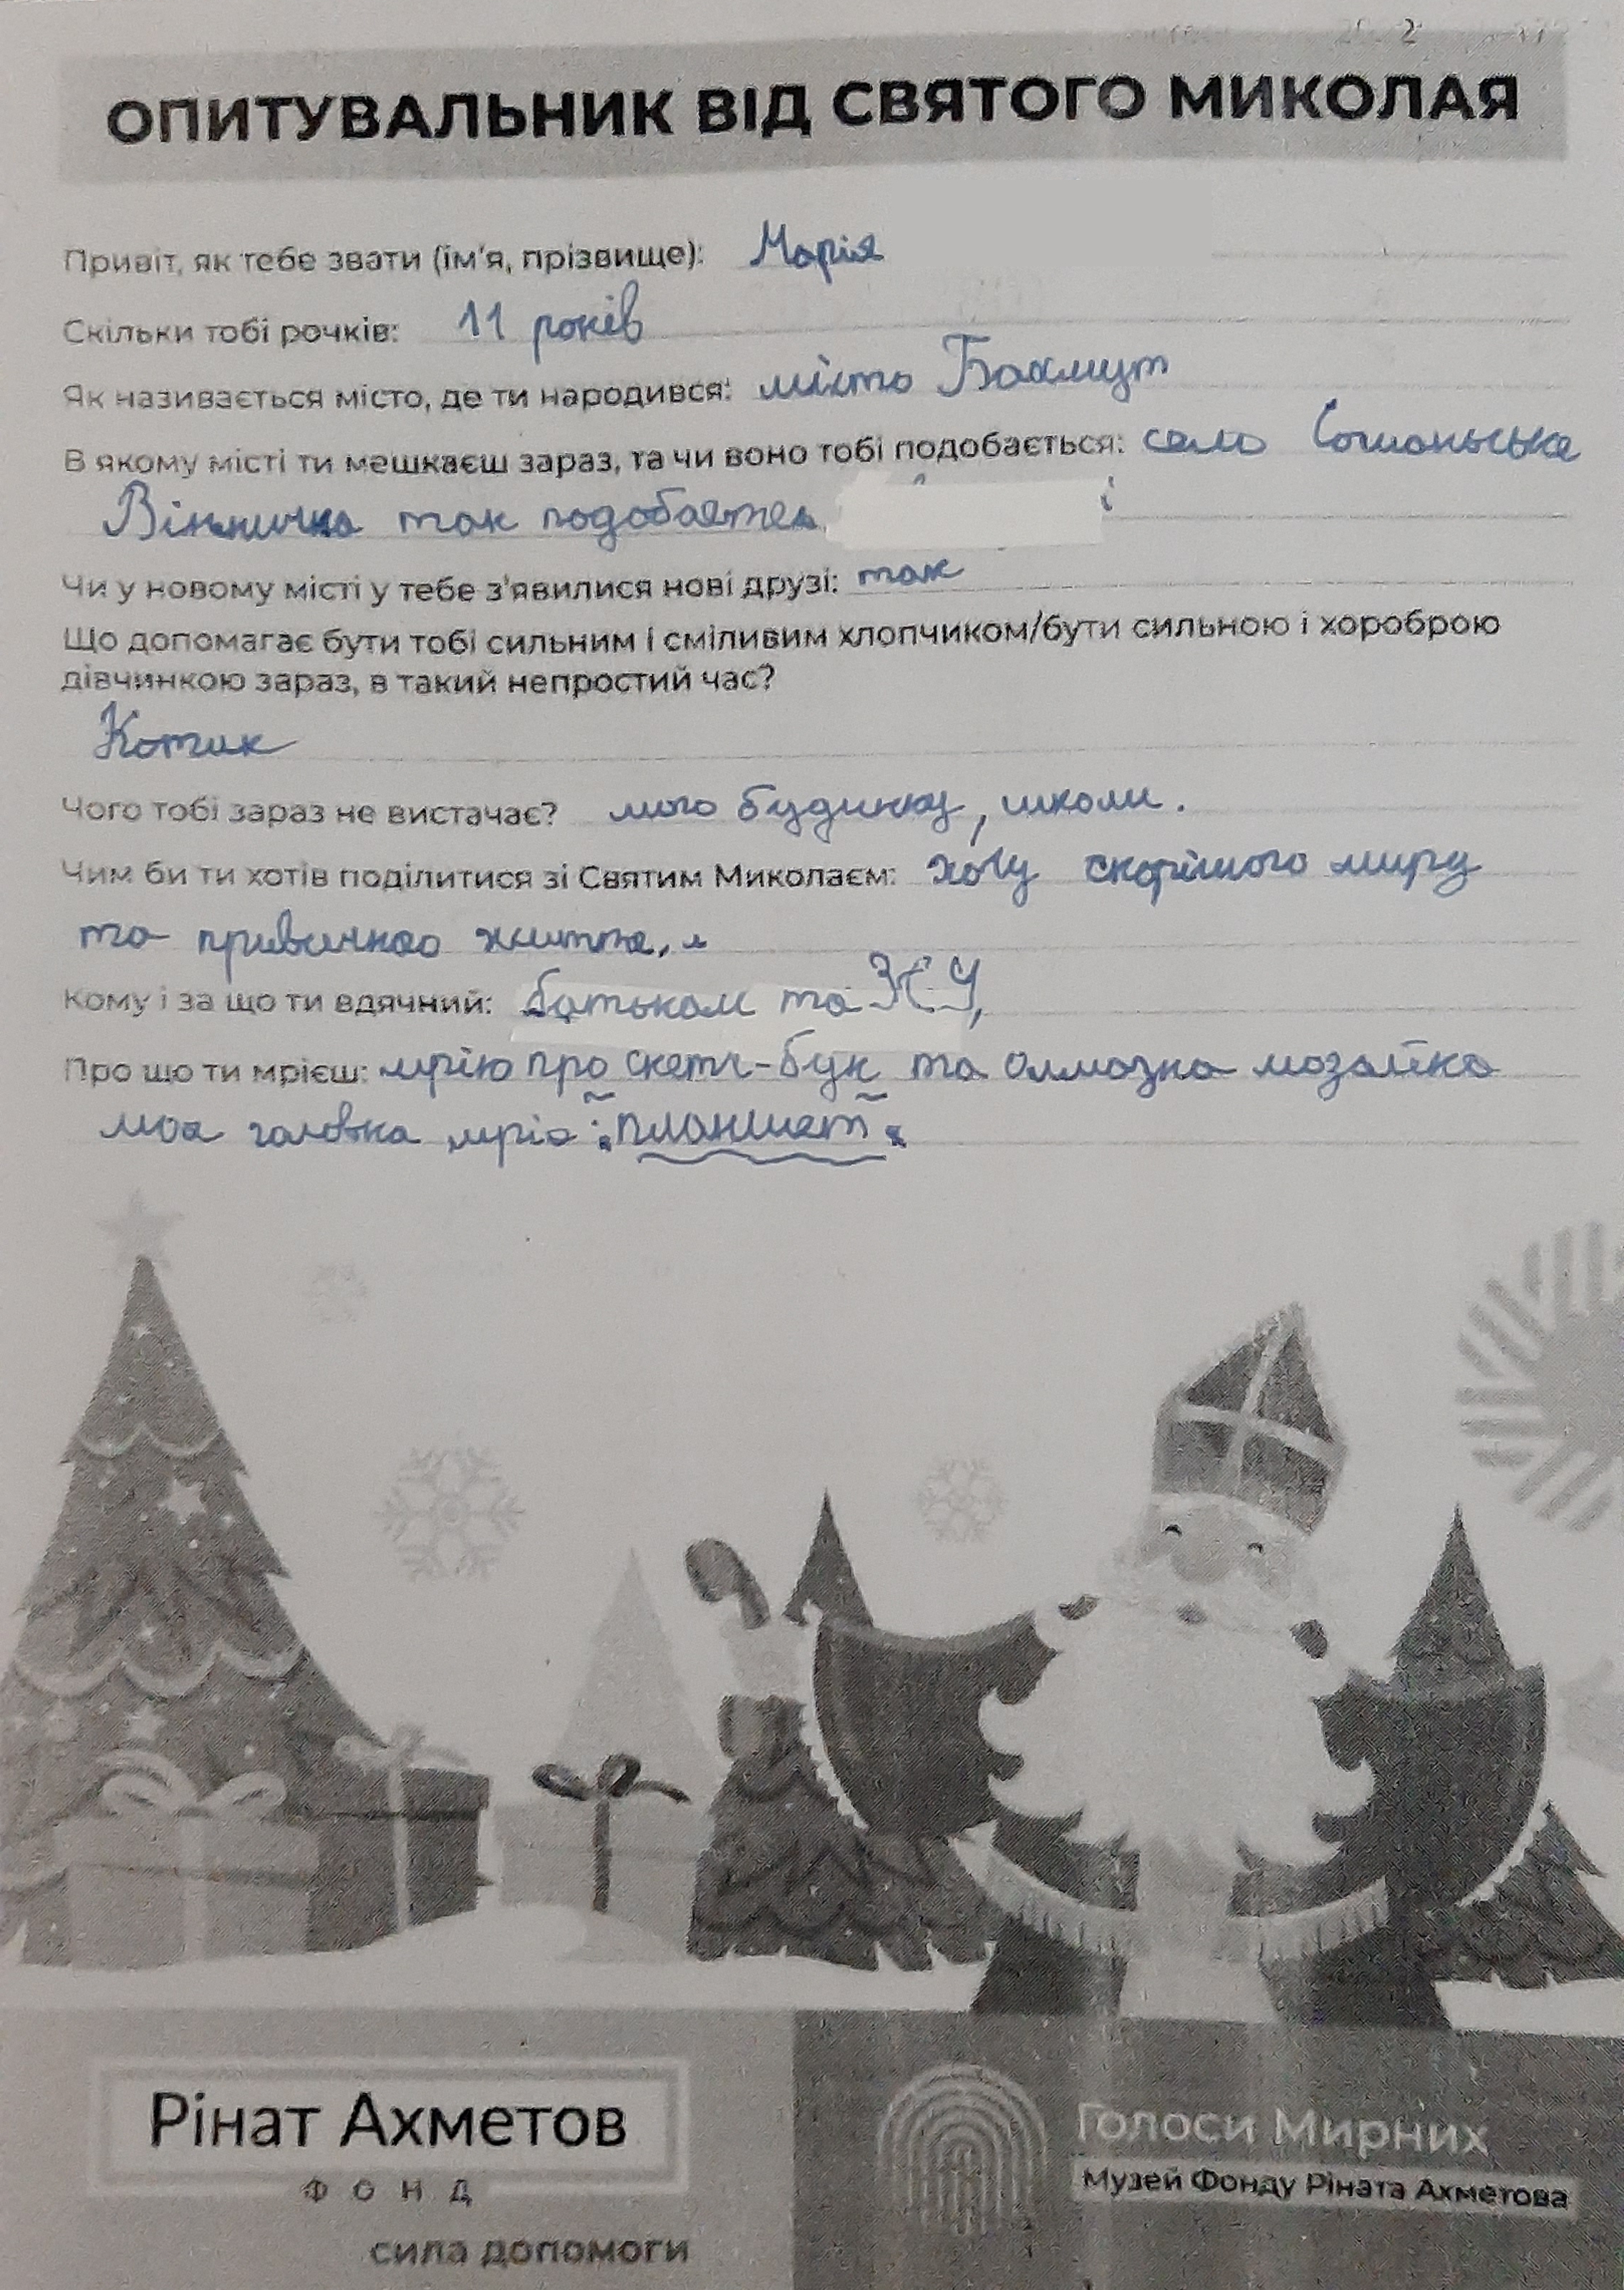 ОПИТУВАЛЬНИК ВІД СВЯТОГО МИКОЛАЯ
Привіт, як тебе звати (ім'я, прізвище): Марія
Скільки тобі рочків: 11 років
Як називається місто, де ти народився: місто Бахмут
В якому місті ти мешкаєш зараз, та чи воно тобі подобається: село
так подобаєтся
Чи у новому місті у тебе з'явилися нові друзі: так
Що допомагає бути тобі сильним і сміливим хлопчиком/бути сильною і хороброю
дівчинкою зараз, в такий непростий час?
Котик
Чого тобі зараз не вистачає? мого будинку, школи.
Чим би ти хотів поділитися зі Святим Миколаєм: хочу скорішого миру
та привичного життя,
Кому і за що ти вдячний: батькам та ЗСУ,
Про що ти мрієш: мрію про скетч-бук та алмазна мозаїка
моя головна мрія: "планшет"
Рінат Ахметов
ФОНД
сила допомоги
Голоси Мирних
Музей Фонду Ріната Ахметова